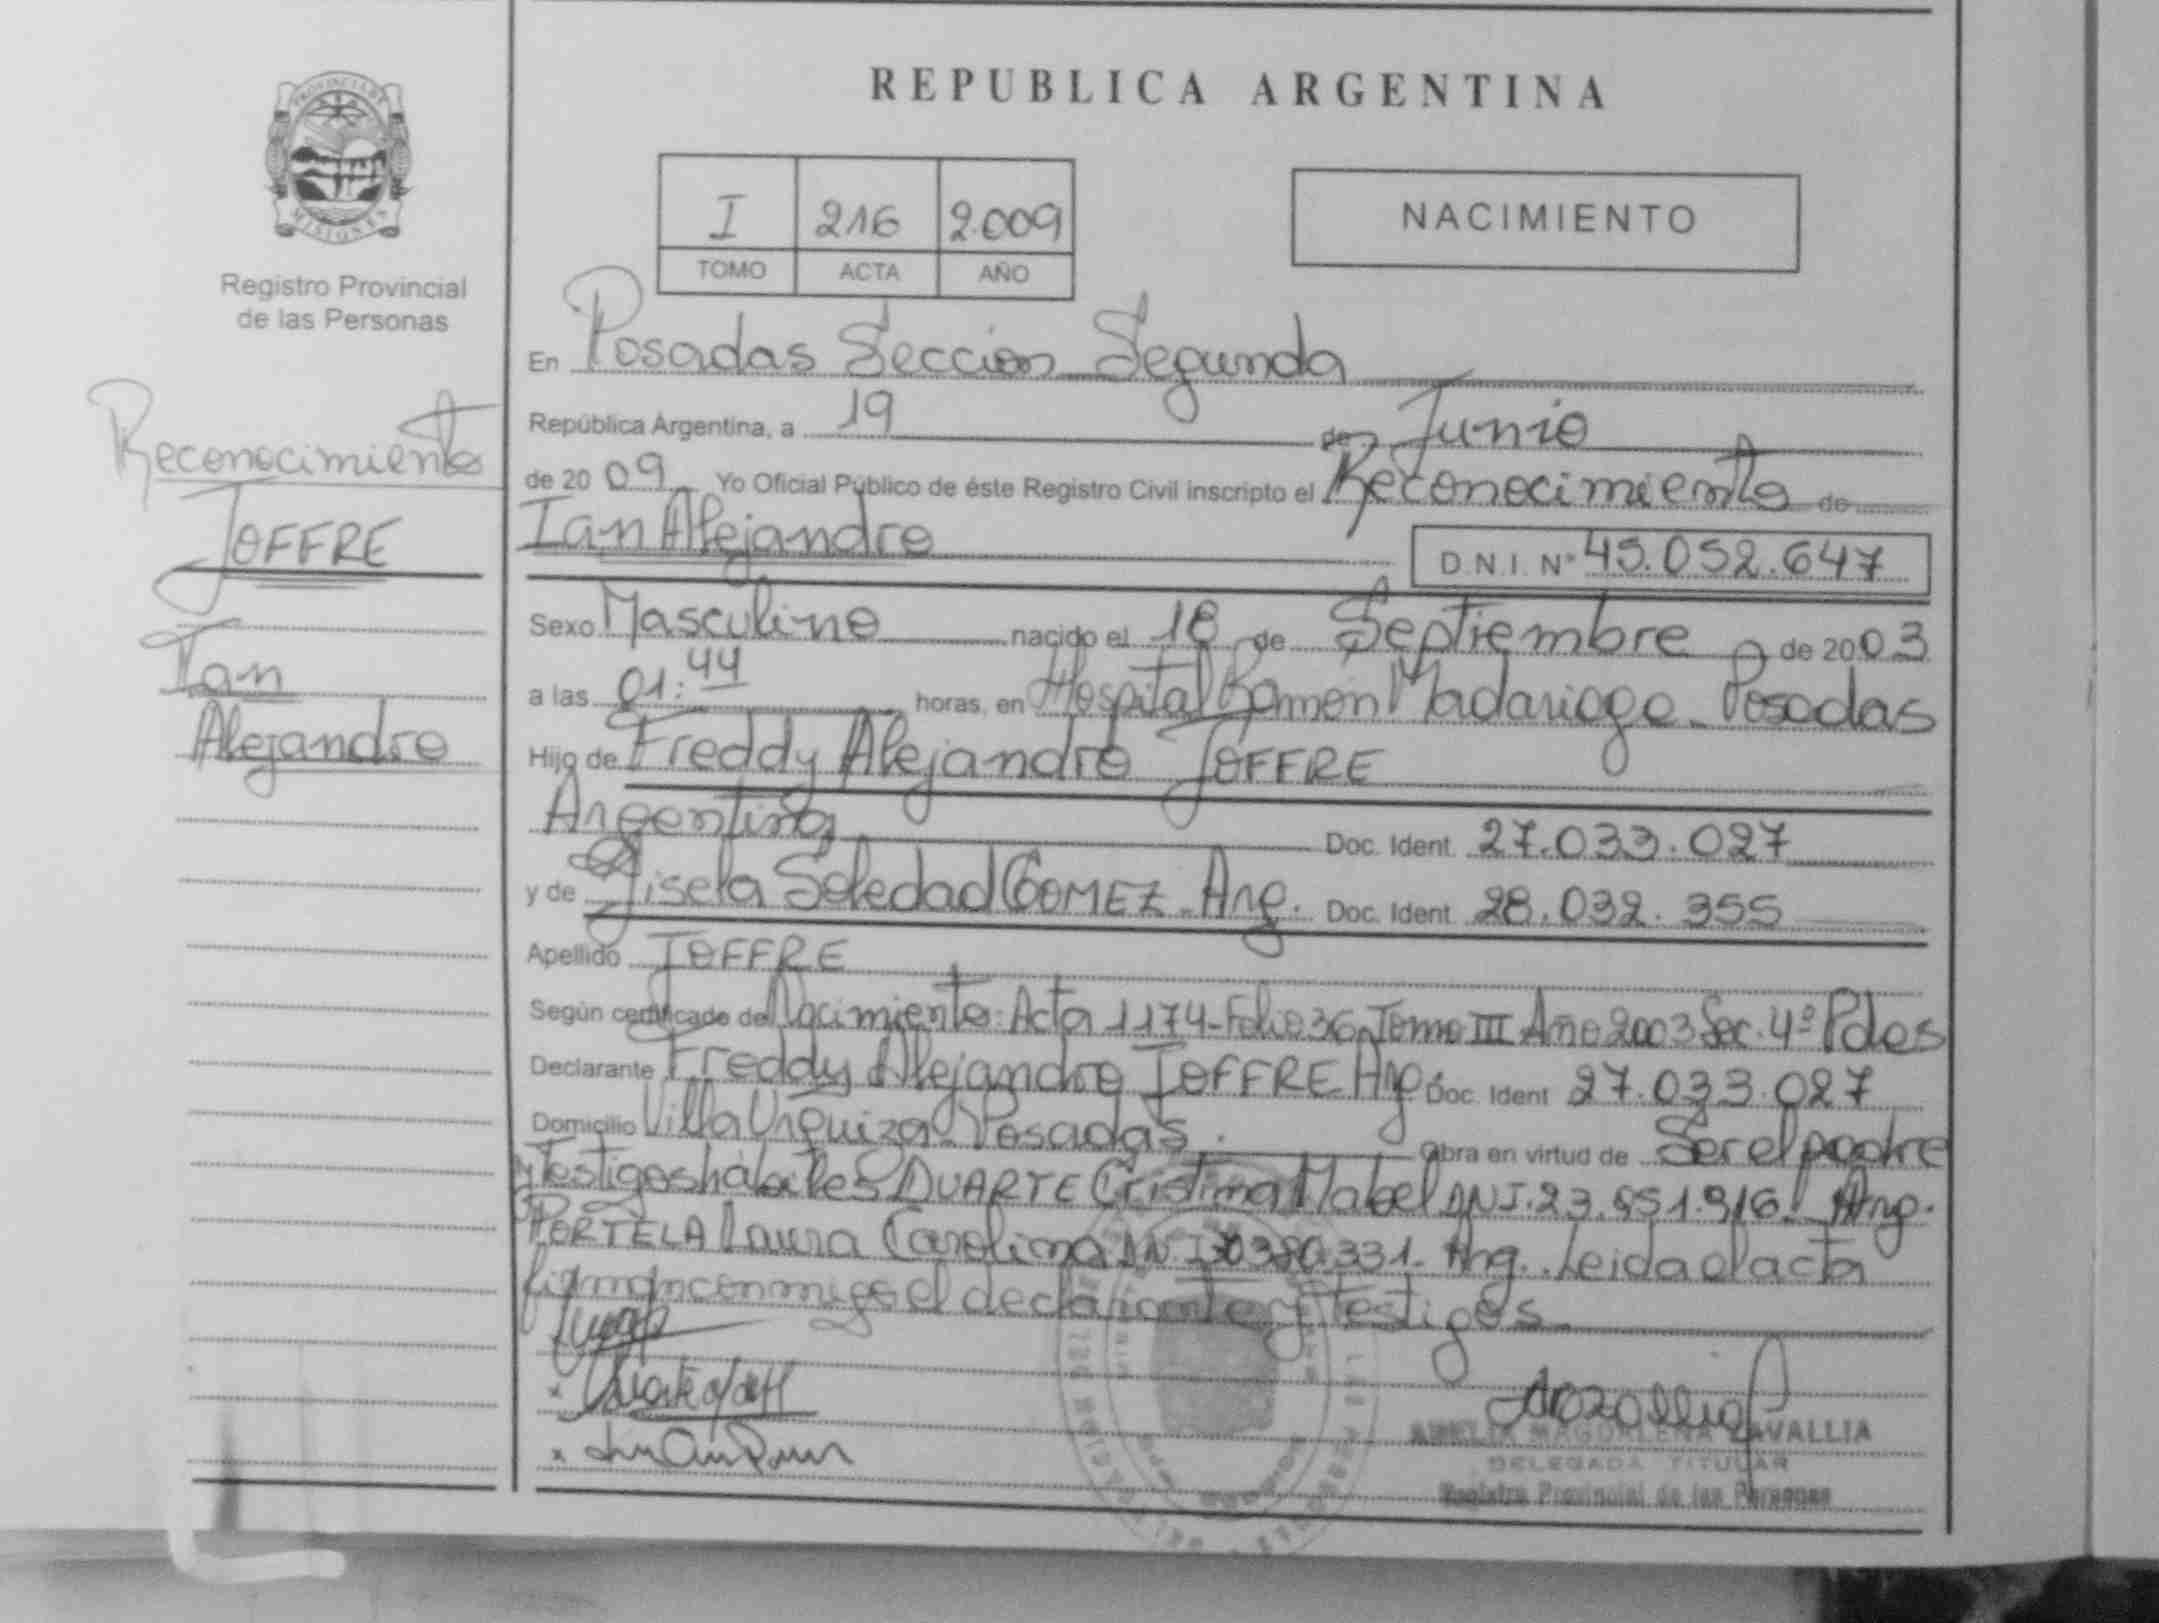 REPUBLICA ARGENTINA
PROVINCIA DE
MISIONES
Registro Provincial
de las Personas
I 216 2.009
TOMO ACTA AÑO
NACIMIENTO
Reconocimiento
JOFFRE
Ian
Alejandro
En Posadas Sección Segunda
República Argentina, a 19 de Junio
de 2009 Yo Oficial Público de éste Registro Civil inscripto el Reconocimiento de
Ian Alejandro D.N.I. Nº 45.052.647
Sexo Masculino nacido el 18 de Septiembre de 2003
a las 01:44 horas, en Hospital Ramón Madariaga - Posadas
Hijo de Freddy Alejandro JOFFRE
Argentino Doc. Ident. 27.033.027
y de Gisela Soledad GOMEZ - Arg. Doc. Ident. 28.032.355
Apellido JOFFRE
Según certificado de Nacimiento: Acta 1174-Folio 36 Tomo III Año 2003 Sec. 4º Pdas
Declarante Freddy Alejandro JOFFRE Arg. Doc. Ident 27.033.027
Domicilio Villa Urquiza - Posadas. Obra en virtud de Ser el padre
y Testigos hábiles DUARTE Cristina Mabel DNI. 23.951.916 Arg.
PORTELA Laura Carolina DNI 30380.331- Arg. Leida el acta
firman conmigo el declarante y Testigos
AMELIA MAGDALENA ZAVALLIA
DELEGADA TITULAR
Registro Provincial de las Personas